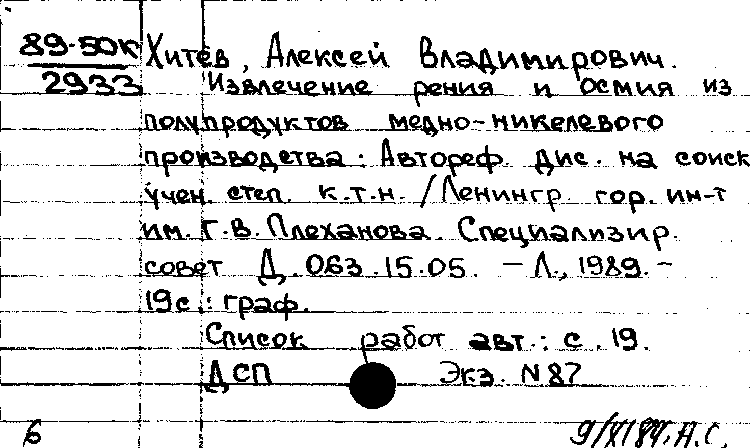 89-50к Хитёв, Алексей Владимирович.
2933 Извлечение рения и осмия из
полупродуктов медно-никелевого
производства: Автореф. дис. на соиск
учен. степ. к.т.н. / Ленингр. гор. ин-т
им. Г.В. Плеханова. Специализир.
совет Д. 063.15.05. – Л., 1989. –
19с.: граф.
Список работ авт.: с. 19.
ДСП Экз. N 87
6